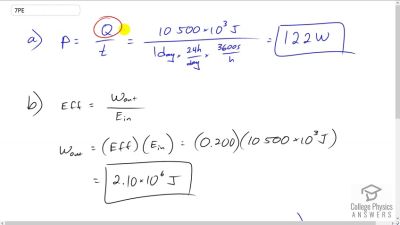 7PE
a) P = Q/t = 10 500×10³ J / 1 day × 24h/day × 3600s/h = 122 W
b) Eff = Wout/Ein
Wout = (Eff)(Ein) = (0.200)(10 500×10³ J)
= 2.10×10⁶ J
College Physics
ANSWERS